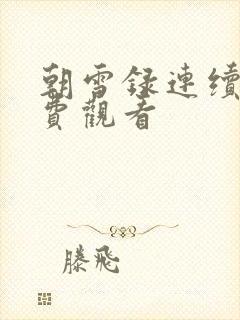 朝雪録連續
費觀看
滕飛